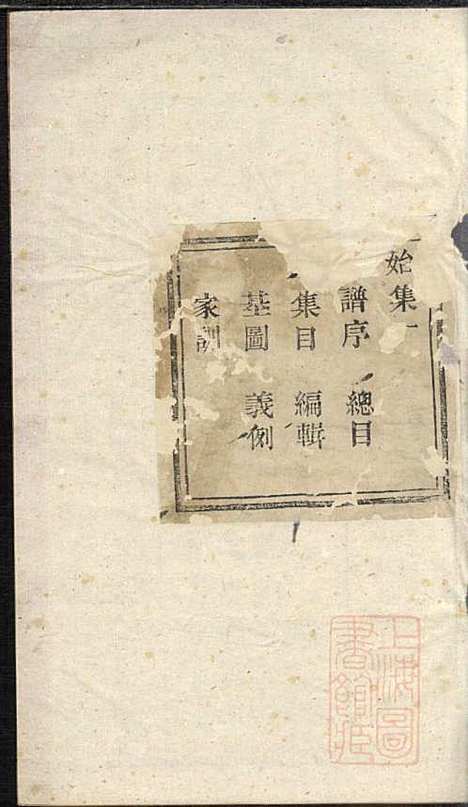 始集一
譜序 總目
集目 編輯
基圖 義例
家訓
上海圖
書館藏